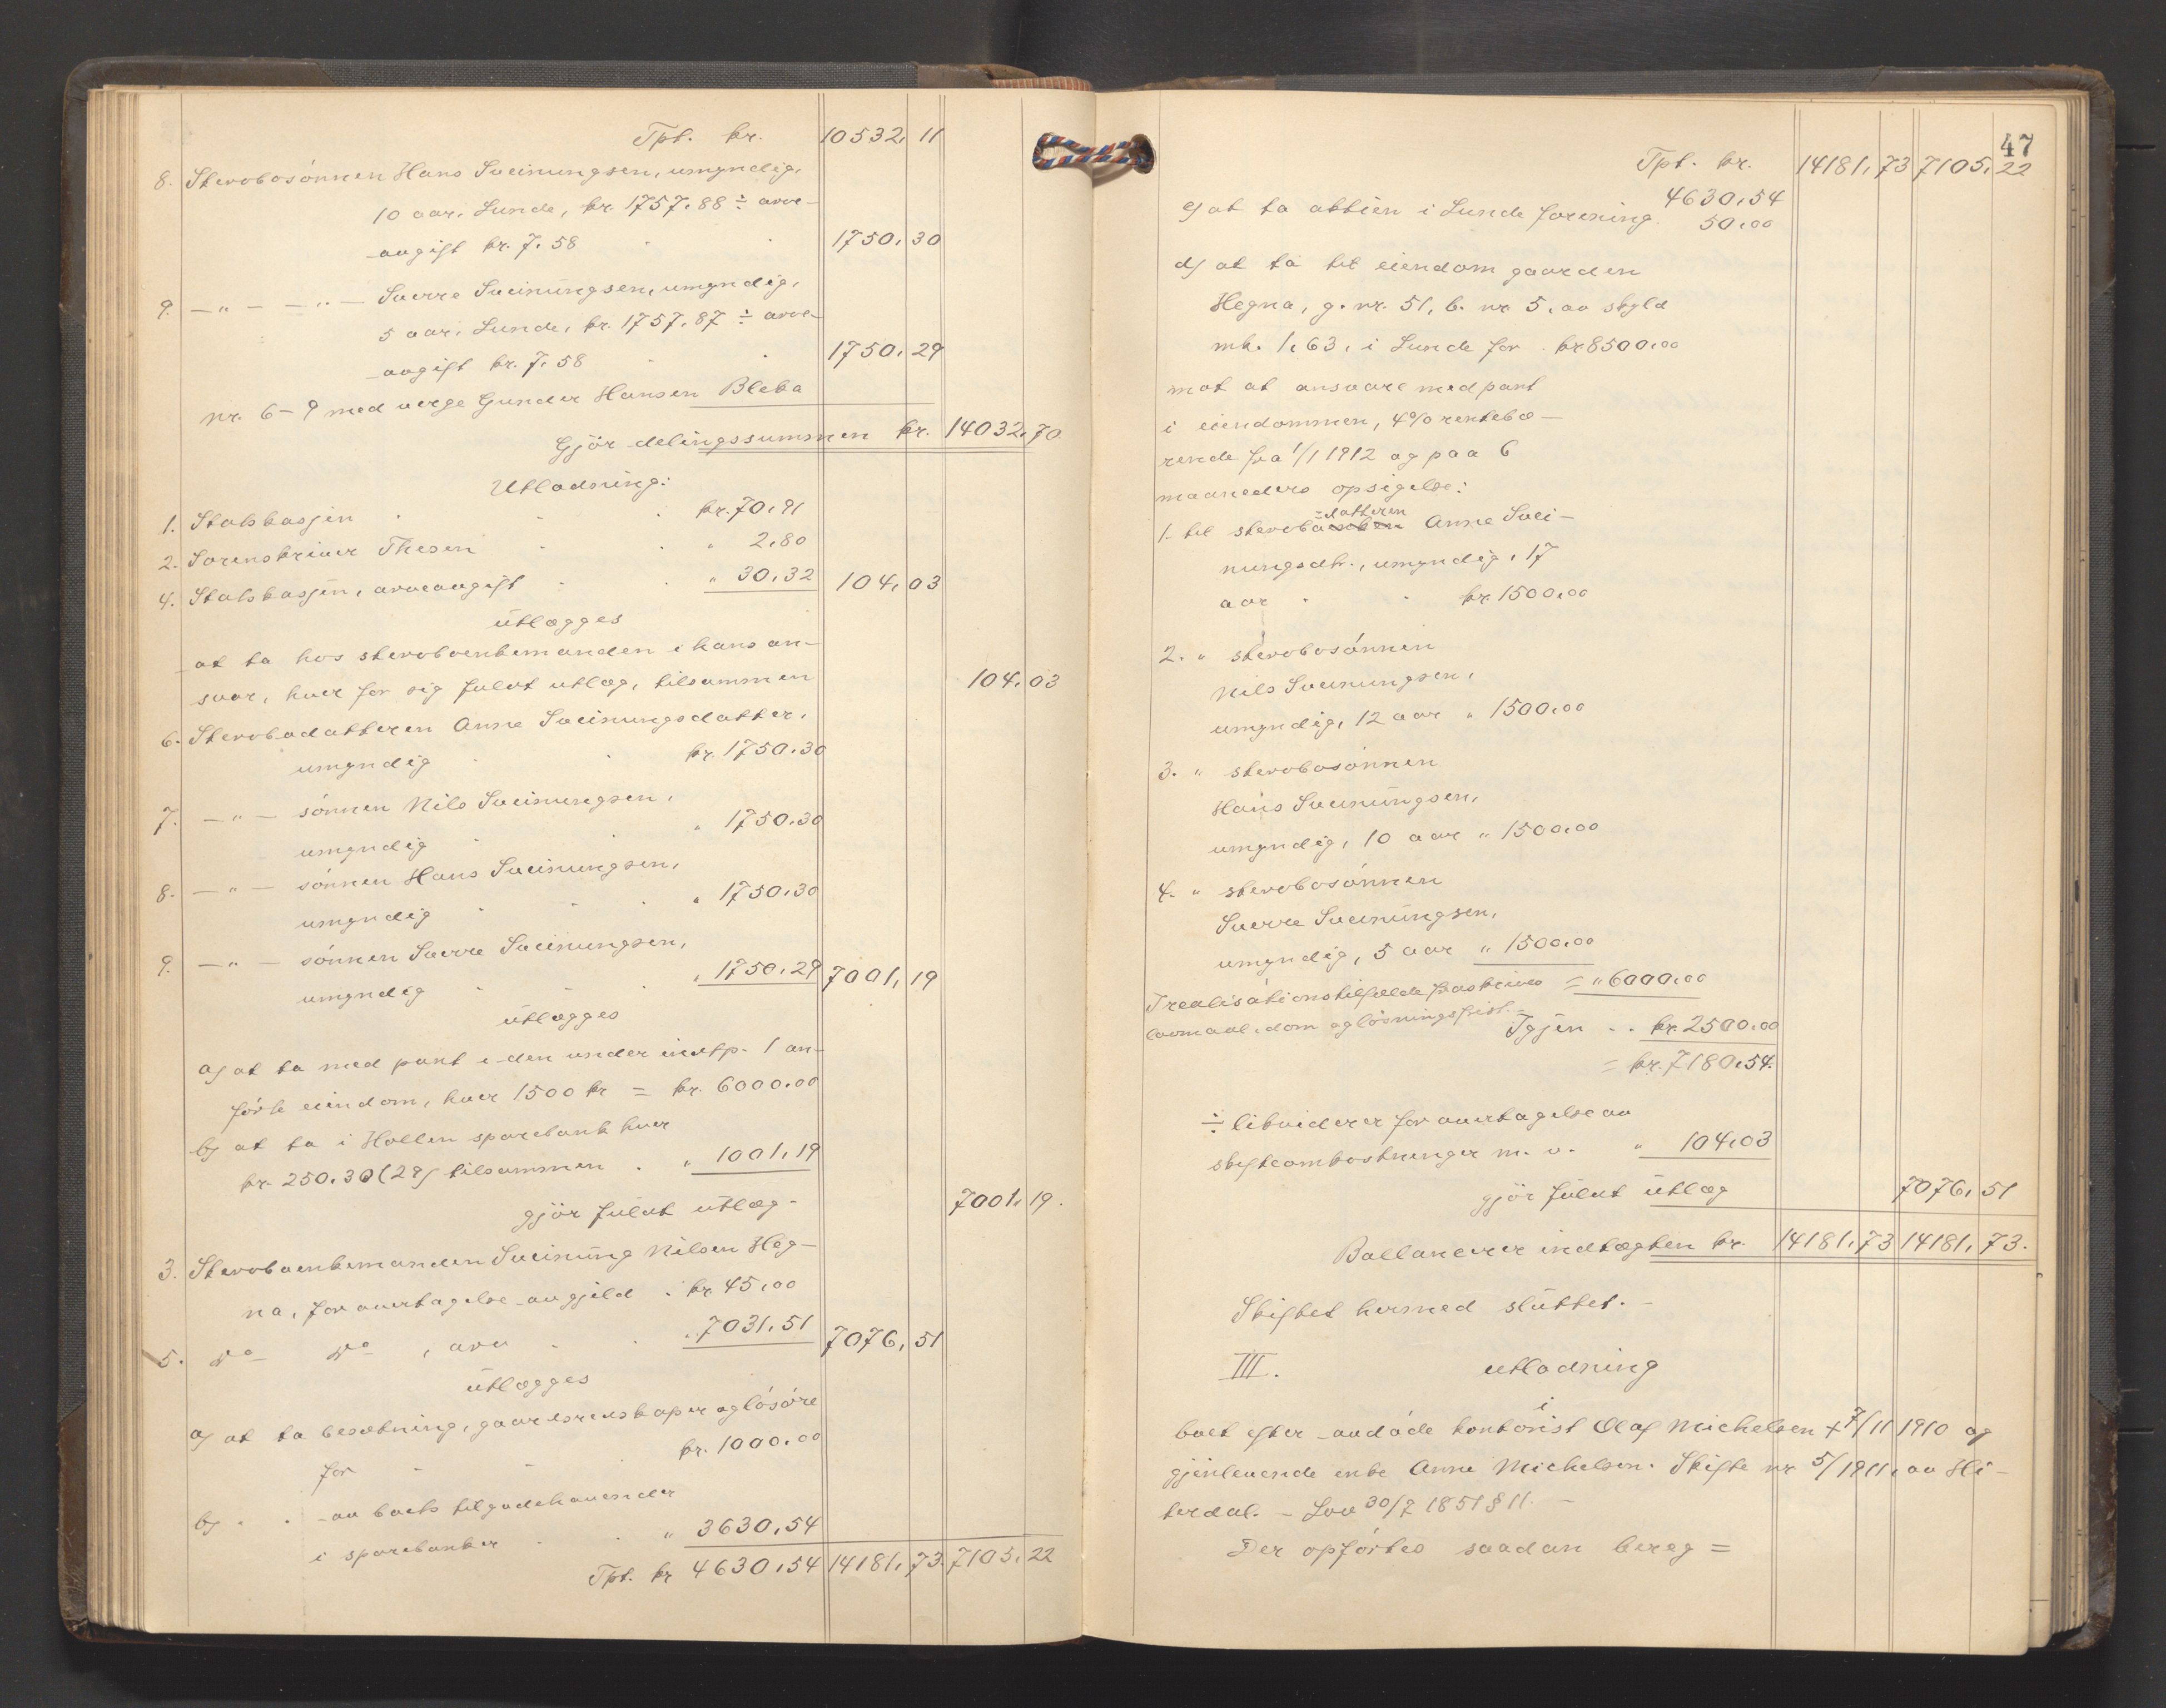 Tpt. kr. 10532, 11
8. Stervbosönnen Hans Sveinungsen, umyndig,
10 aar, Lunde, kr. 1757.88 ÷ arve-
avgift kr. 7.58 1750, 30
9. —"— —"— Sverre Sveinungsen, umyndig,
5 aar, Lunde, kr. 1757.87 ÷ arve-
avgift kr. 7.58 1750, 29
nr. 6-9 med verge Gunder Hansen Bleka
Gjör delingssummen kr. 14032,70
Utlodning:
1. Statskassen kr. 70,91
2. Sorenskriver Thesen " 2,80
4. Statskassen, arveavgift " 30,32 104,03
utlægges
at ta hos stervboenkemanden i hans an-
svar, hver for sig fuldt utlæg, tilsammen 104,03
6. Stervbodatteren Anne Sveinungsdatter,
umyndig kr. 1750.30
7. —"— sönnen Nils Sveinungsen,
umyndig " 1750.30
8. —"— sönnen Hans Sveinungsen,
umyndig " 1750.30
9. —"— sönnen Sverre Sveinungsen,
umyndig " 1750.29 7001,19
utlægges
a) at ta med pant i den under indtp. 1 an-
förte eiendom, hver 1500 kr = kr. 6000.00
b) at ta i Hollen sparebank hver
kr. 250.30 (29) tilsammen " 1001,19
gjör fuldt utlæg - 7001,19.
3. Stervboenkemanden Sveinung Nilsen Heg-
na, for overtagelse av gjeld kr. 45,00
5. do do, arv " 7031,51 7076,51
utlægges
a) at ta besætning, gaardsredskaper og lösöre
for kr. 1000.00
b) " " av boets tilgodehavender
i sparebanker " 3630,54
Tpt. kr 4630,54 14181,73. 7105,22
47
Tpt. kr. 14181,73 7105,22
4630,54
c) at ta aktien i Lunde forening. 50,00
d) at ta til eiendom gaarden
Hegna, g. nr. 51, b. nr 5, av skyld
mk. 1,63, i Lunde for kr 8500,00
mot at ansvare med pant
i eiendommen, 4% rentebæ-
rende fra 1/1 1912 og paa 6
maaneders opsigelse:
=datteren
1. til stervboenken Anne Svei-
nungsdtr., umyndig, 17
aar kr. 1500,00
2. " stervbosönnen
Nils Sveinungsen,
umyndig, 12 aar " 1500,00
3. " stervbosönnen
Hans Sveinungsen,
umyndig, 10 aar " 1500,00
4. " stervbosönnen
Sverre Sveinungsen,
umyndig, 5 aar " 1500,00
I realisationstilfælde fraskrives = " 6000,00
lovmaal, dom og lösningsfrist.=
Igjen .. kr. 2500,00
= kr. 7180,54.
÷ likviderer for overtagelse av
skifteomkostninger m. v. " 104,03
gjör fuldt utlæg 7076,51
Ballancerer indtægten kr. 14181,73 14181,73.
Skiftet hermed sluttet. -
III. utlodning
i
boet efter avdöde kontorist Olaf Michelsen + 7/11 1910 og
gjenlevende enke Anne Michelsen. Skifte nr 5/1911, av Hi-
terdal. - Lov 30/7 1851 § 11. -
Der opförtes saadan bereg =